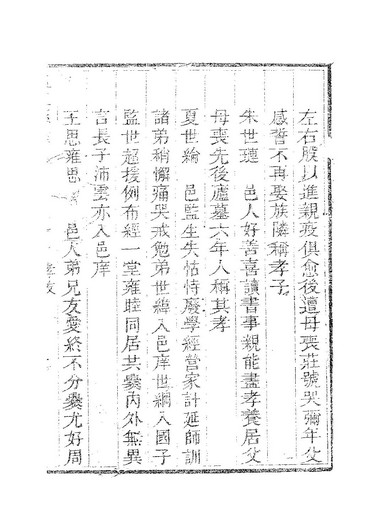 左右股以進親疾俱愈後遭母喪莊號哭彌年父
感誓不再娶族隣稱孝子
朱世璉 邑人好善喜讀書事親能盡孝養居父
母喪先後廬墓六年人稱其孝
夏世綸 邑監生失怙恃廢學經營家計延師訓
諸弟稍懈痛哭戒勉弟世緯入邑庠世綱入國子
監世超援例布經一堂雍睦同居共爨內外無異
言長子沛雲亦入邑庠
王思雍思 邑人弟兄友愛終不分爨尤好周